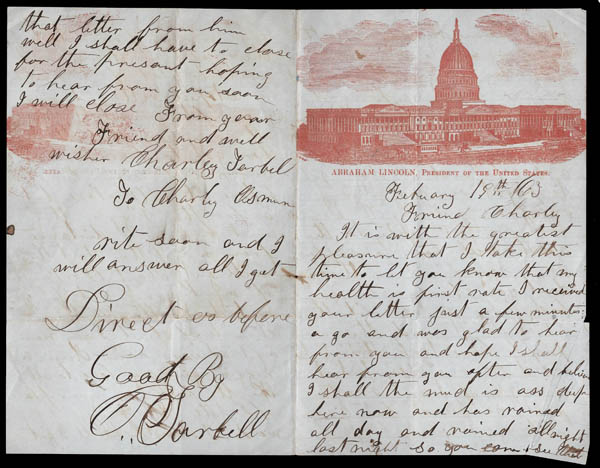 that letter from him
well I shall have to close
for the presant hoping
to hear from you soon
I will close From your
Friend and well
wisher Charley Tarbel
To Charly Osmun
rite soon and I
will answer all I get
Direct as before
Good By
C. Tarbell
ABRAHAM LINCOLN, PRESIDENT OF THE UNITED STATES.
Febuary 19th /63
Friend Charley
It is with the greatest
pleasure that I take this
time to let you know that my
health is first rate I received
your letter just a few minutes
a go and was glad to hear
from you and hope I shall
hear from you often and
I shall the mud is ass deep
here now and has rained
all day and rained all night
last night so you can see that